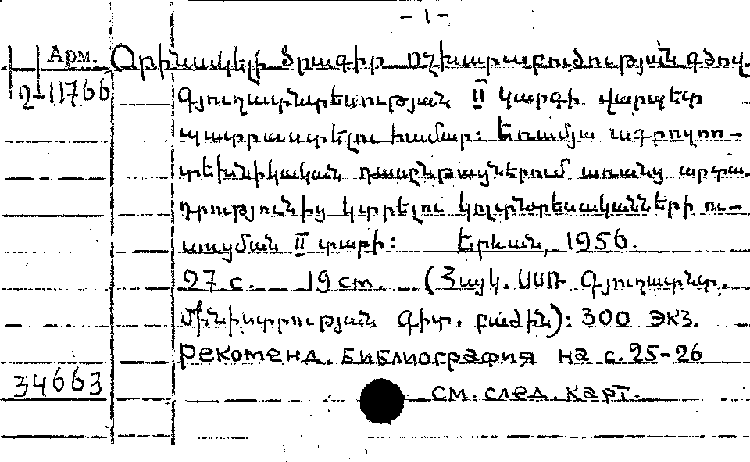 - 1 -
Арм. Օրինակելի ծրագիր ոչխարաբուծության գծով
Ղ-11766 Գյուղատնտեսության II կարգի վարպետ
պատրաստելու համար: Եռամյա ագրոզոո-
տեխնիկական դասընթացներում առանց արտա-
դրությունից կտրելու կոլտնտեսականների ու-
սուցման II տարի: Երևան, 1956.
27 с. 19 cm. (Հայկ. ՍՍՌ Գյուղատնտ.
մինիստրության գիտ. բաժին): 300 экз.
Рекоменд. библиография на с. 25-26
34663 см. след. карт.